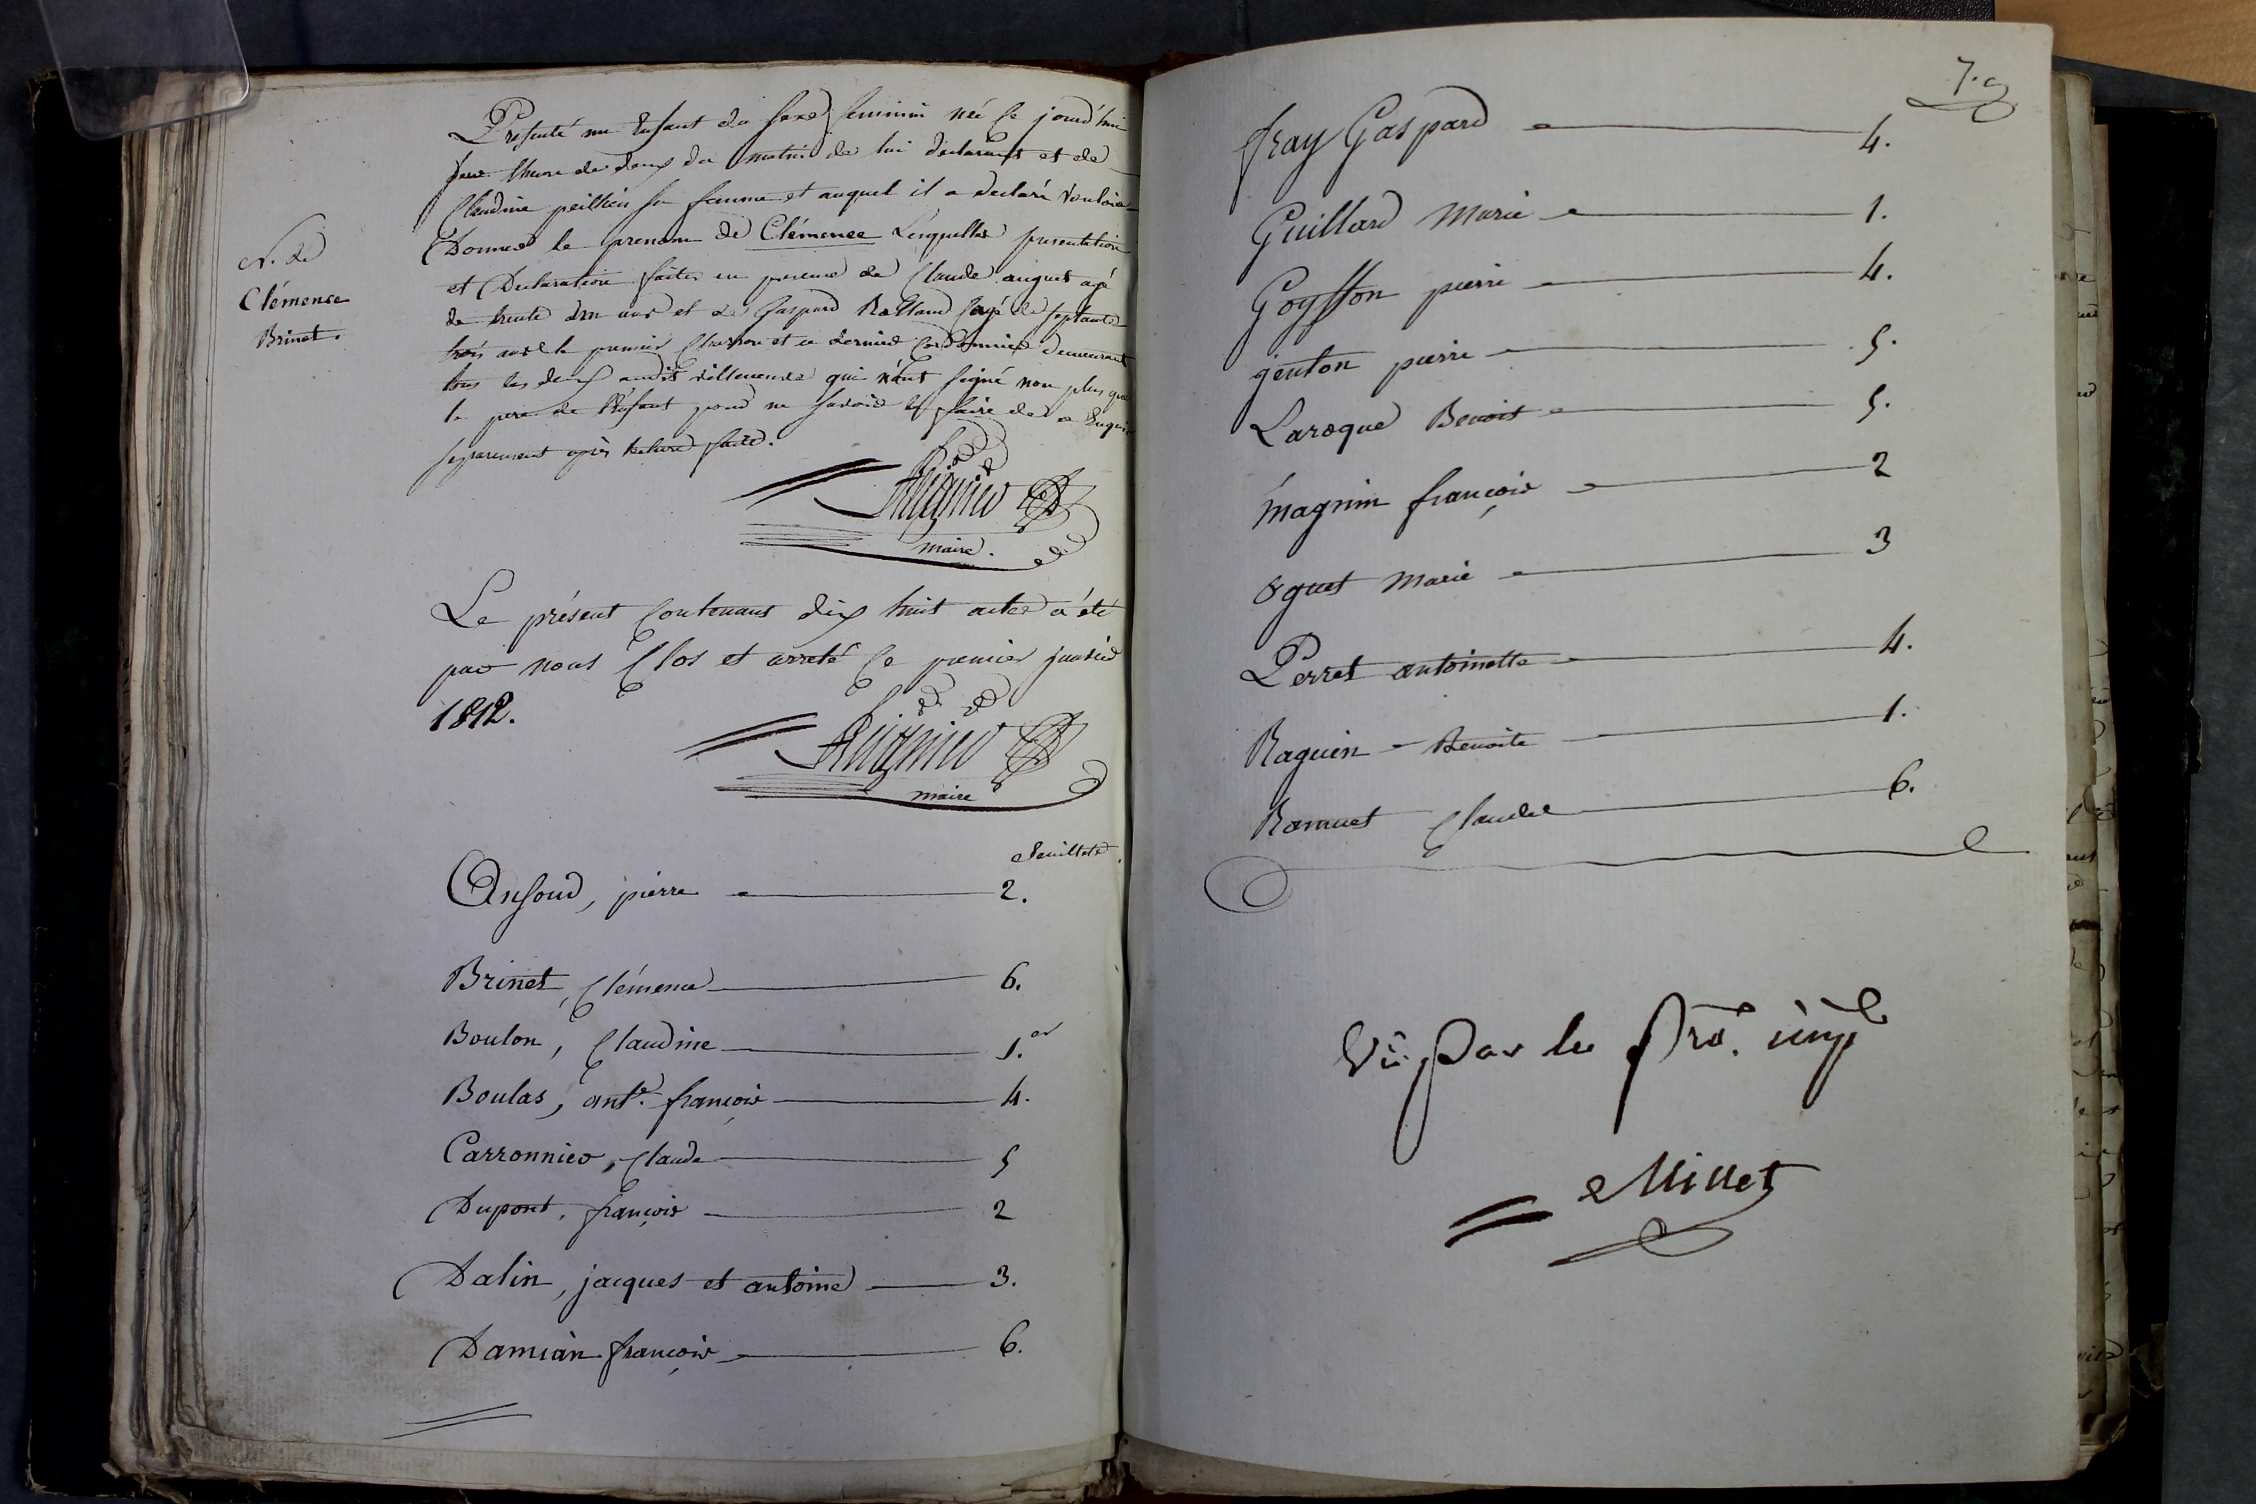 Présenté un Enfant du sexe feminin né ce jourd'hui
sur lheure de deux du matin de lui déclarant et de
Claudine peillieu sa femme et auquel il a declaré vouloir
Donner le prenom de Clémence Lesquelles presentation
et Declaration faites en presence de Claude auguet agé
de trente ans et de Gaspard Rolland agé de septante
trois ans le premier Charron et ce dernier Cordonnier demeurant
tous les deux audit villeneuve qui n'ont signé non plus que
le pere de l'Enfant pour ne savoir le faire de ce Enquis
separement après lecture faite.
N. de
Clémence
Brinet.
maire.
Le présent Contenant dix huit actes a été
par nous Clos et arreté ce premier janvier
1812.
maire
feuillets.
Ansoud, pierre 2.
Brinet, Clémence 6.
Boulon, Claudine 1.er
Boulas, ant.e françois 4.
Carronnier, Claude 5
Dupont, françois 2
Dalin, jacques et antoine 3.
Damian françois 6.
7.e
fray Gaspard 4.
Guillard Marie 1.
Goyffon pierre 4.
genton pierre 5.
Laroque Benoit 5.
Magnin françois 2
oguet Marie 3
Perret antoinette 4.
Raguin Benoite 1.
Ramuet Claude 6.
Vu par le Pro. imp.l
Millet